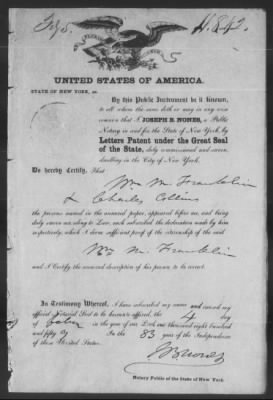 UNITED STATES OF AMERICA.
STATE OF NEW YORK, ss.
By this Public Instrument be it known,
to all whom the same doth or may in any wise
concern that I JOSEPH B. NONES, a Public
Notary in and for the State of New York, by
Letters Patent under the Great Seal
of the State, duly commissioned and sworn,
dwelling in the City of New York.
Do hereby Certify, That
Wm M Franklin
& Charles Collins
the persons named in the annexed paper, appeared before me, and being
duly sworn according to Law, each subscribed the declaration made by him
respectively, which I deem sufficient proof of the citizenship of the said
Wm M. Franklin
and I Certify the annexed description of his person to be correct.
In Testimony Whereof, I have subscribed my name and caused my
official Notarial Seal to be hereunto affixed, the 4 day
of in the year of our Lord one thousand eight hundred
and fifty 9 In the 83 year of the Independence
of these United States.
JB Nones
Notary Public of the State of New York.